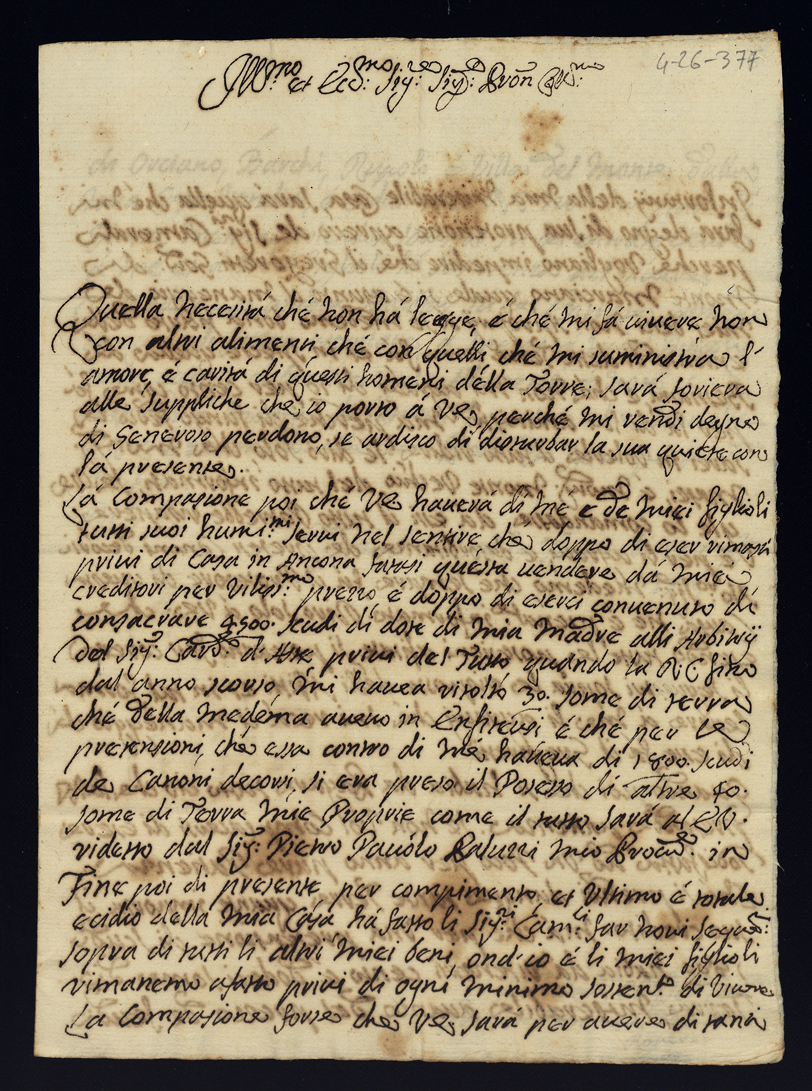 4-26-377
Ill:mo et Ecc:mo Sig:re Sig:re Pron Col:mo
Quella necesità ché non há legge, é ché mi fá viuere non
con altri alimenti ché con quelli ché mi suministra l'
amore, é carità di questi homeni délla Torre; sarà foriera
alle suppliche che io porto á VE, perché mi rendi degno
di Generoso perdono, se ardisco di disturbar la sua quiete con
lá presente.
Lá Compasione poi ché VE hauerá di mé e de miei figlioli
tutti suoi humi:mi serui nel sentire ché doppo di eser rimasti
priui di Casa in Ancona fatasi questa uendere dá miei
creditori per vilis:mo prezzo é doppo di eserci conuenuto di
consacrare 4500. scudi di dote di mia Madre alli Arbitrij
del Sig:r Card:le d'Aste, priui del Tutto quando la RC fino
dal anno scorso, mi hauea risolto 30. some di terra
ché della medema aueuo in Enfiteusi é ché per le
pretensioni, ché essa contro di mé haueua di 1800. scudi
de Canoni decorsi, si era preso il Poseso di altre 40.
some di Terra mie Proprie come il tutto sará al EV.
ridetto dal Sig:r Pietro Pauólo Baluzzi mio Procu:re in
Fine poi di presente per compimento et Ultimo é totale
ecidio della mia Casa há fatto li Sig:ri Cam:li far noui sequ:ri
sopra di tutti li altri miei beni, ond'io é li miei figlioli
rimanemo afatto priui di ogni minimo sosten:to di viuere
La Compasione forse che VE, sarà per auere di tanti